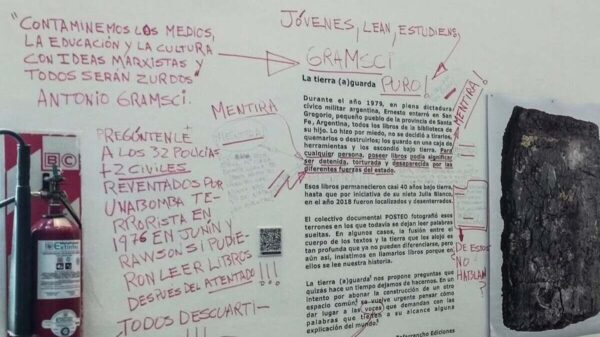 "CONTAMINEMOS LOS MEDIOS,
LA EDUCACIÓN Y LA CULTURA
CON IDEAS MARXISTAS Y
TODOS SERÁN ZURDOS"
ANTONIO GRAMSCI.
JÓVENES, LEAN, ESTUDIENS,
GRAMSCI
PURO!
MENTIRA
MENTIRA!
PREGÚNTENLE
A LOS 32 POLICÍAS
+2 CIVILES
REVENTADOS POR
UNA BOMBA TE-
RRORISTA EN
1976 EN JUNÍN Y
RAWSON SI PUDIE-
RON LEER LIBROS
DESPUES DEL ATENTADO!!!
TODOS DESCUARTI-
La tierra (a)guarda
Durante el año 1979, en plena dictadura
cívico militar argentina, Ernesto enterró en San
Gregorio, pequeño pueblo de la provincia de Santa
Fe, Argentina, todos los libros de la biblioteca de
su hijo. Lo hizo por miedo, no se decidió a tirarlos,
quemarlos o destruirlos; los guardo en una caja de
herramientas y los escondió bajo tierra. Para
cualquier persona, poseer libros podía significar
ser detenida, torturada y desaparecida por las
diferentes fuerzas del estado.
Esos libros permanecieron casi 40 años bajo tierra,
hasta que por iniciativa de su nieta Julia Blanco,
en el año 2018 fueron localizados y desenterrados.
El colectivo documental POSTEO fotografió esos
terrones en los que todavía se dejan leer palabras
sueltas. En algunos casos, la fusión entre el
cuerpo de los textos y la tierra que los alojó es
tan profunda que ya no pueden diferenciarse, pero
aún así, insistimos en llamarlos libros porque en
ellos se lee nuestra historia.
La tierra (a)guarda nos propone preguntas que
quizás hace un tiempo dejamos de hacernos. En un
intento por abonar la construcción de un otro
espacio común, se vuelve urgente pensar cómo
dar lugar a las voces que demandan con las
palabras que tienen a su alcance alguna
explicación del mundo.
Ediciones
DE ESTOS
NO
HABLAN?
BC